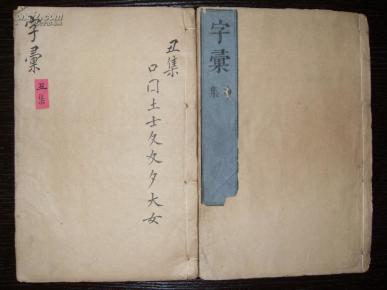 字彙
丑集
丑集
口囗土士夂夊夕大女
字彙
集